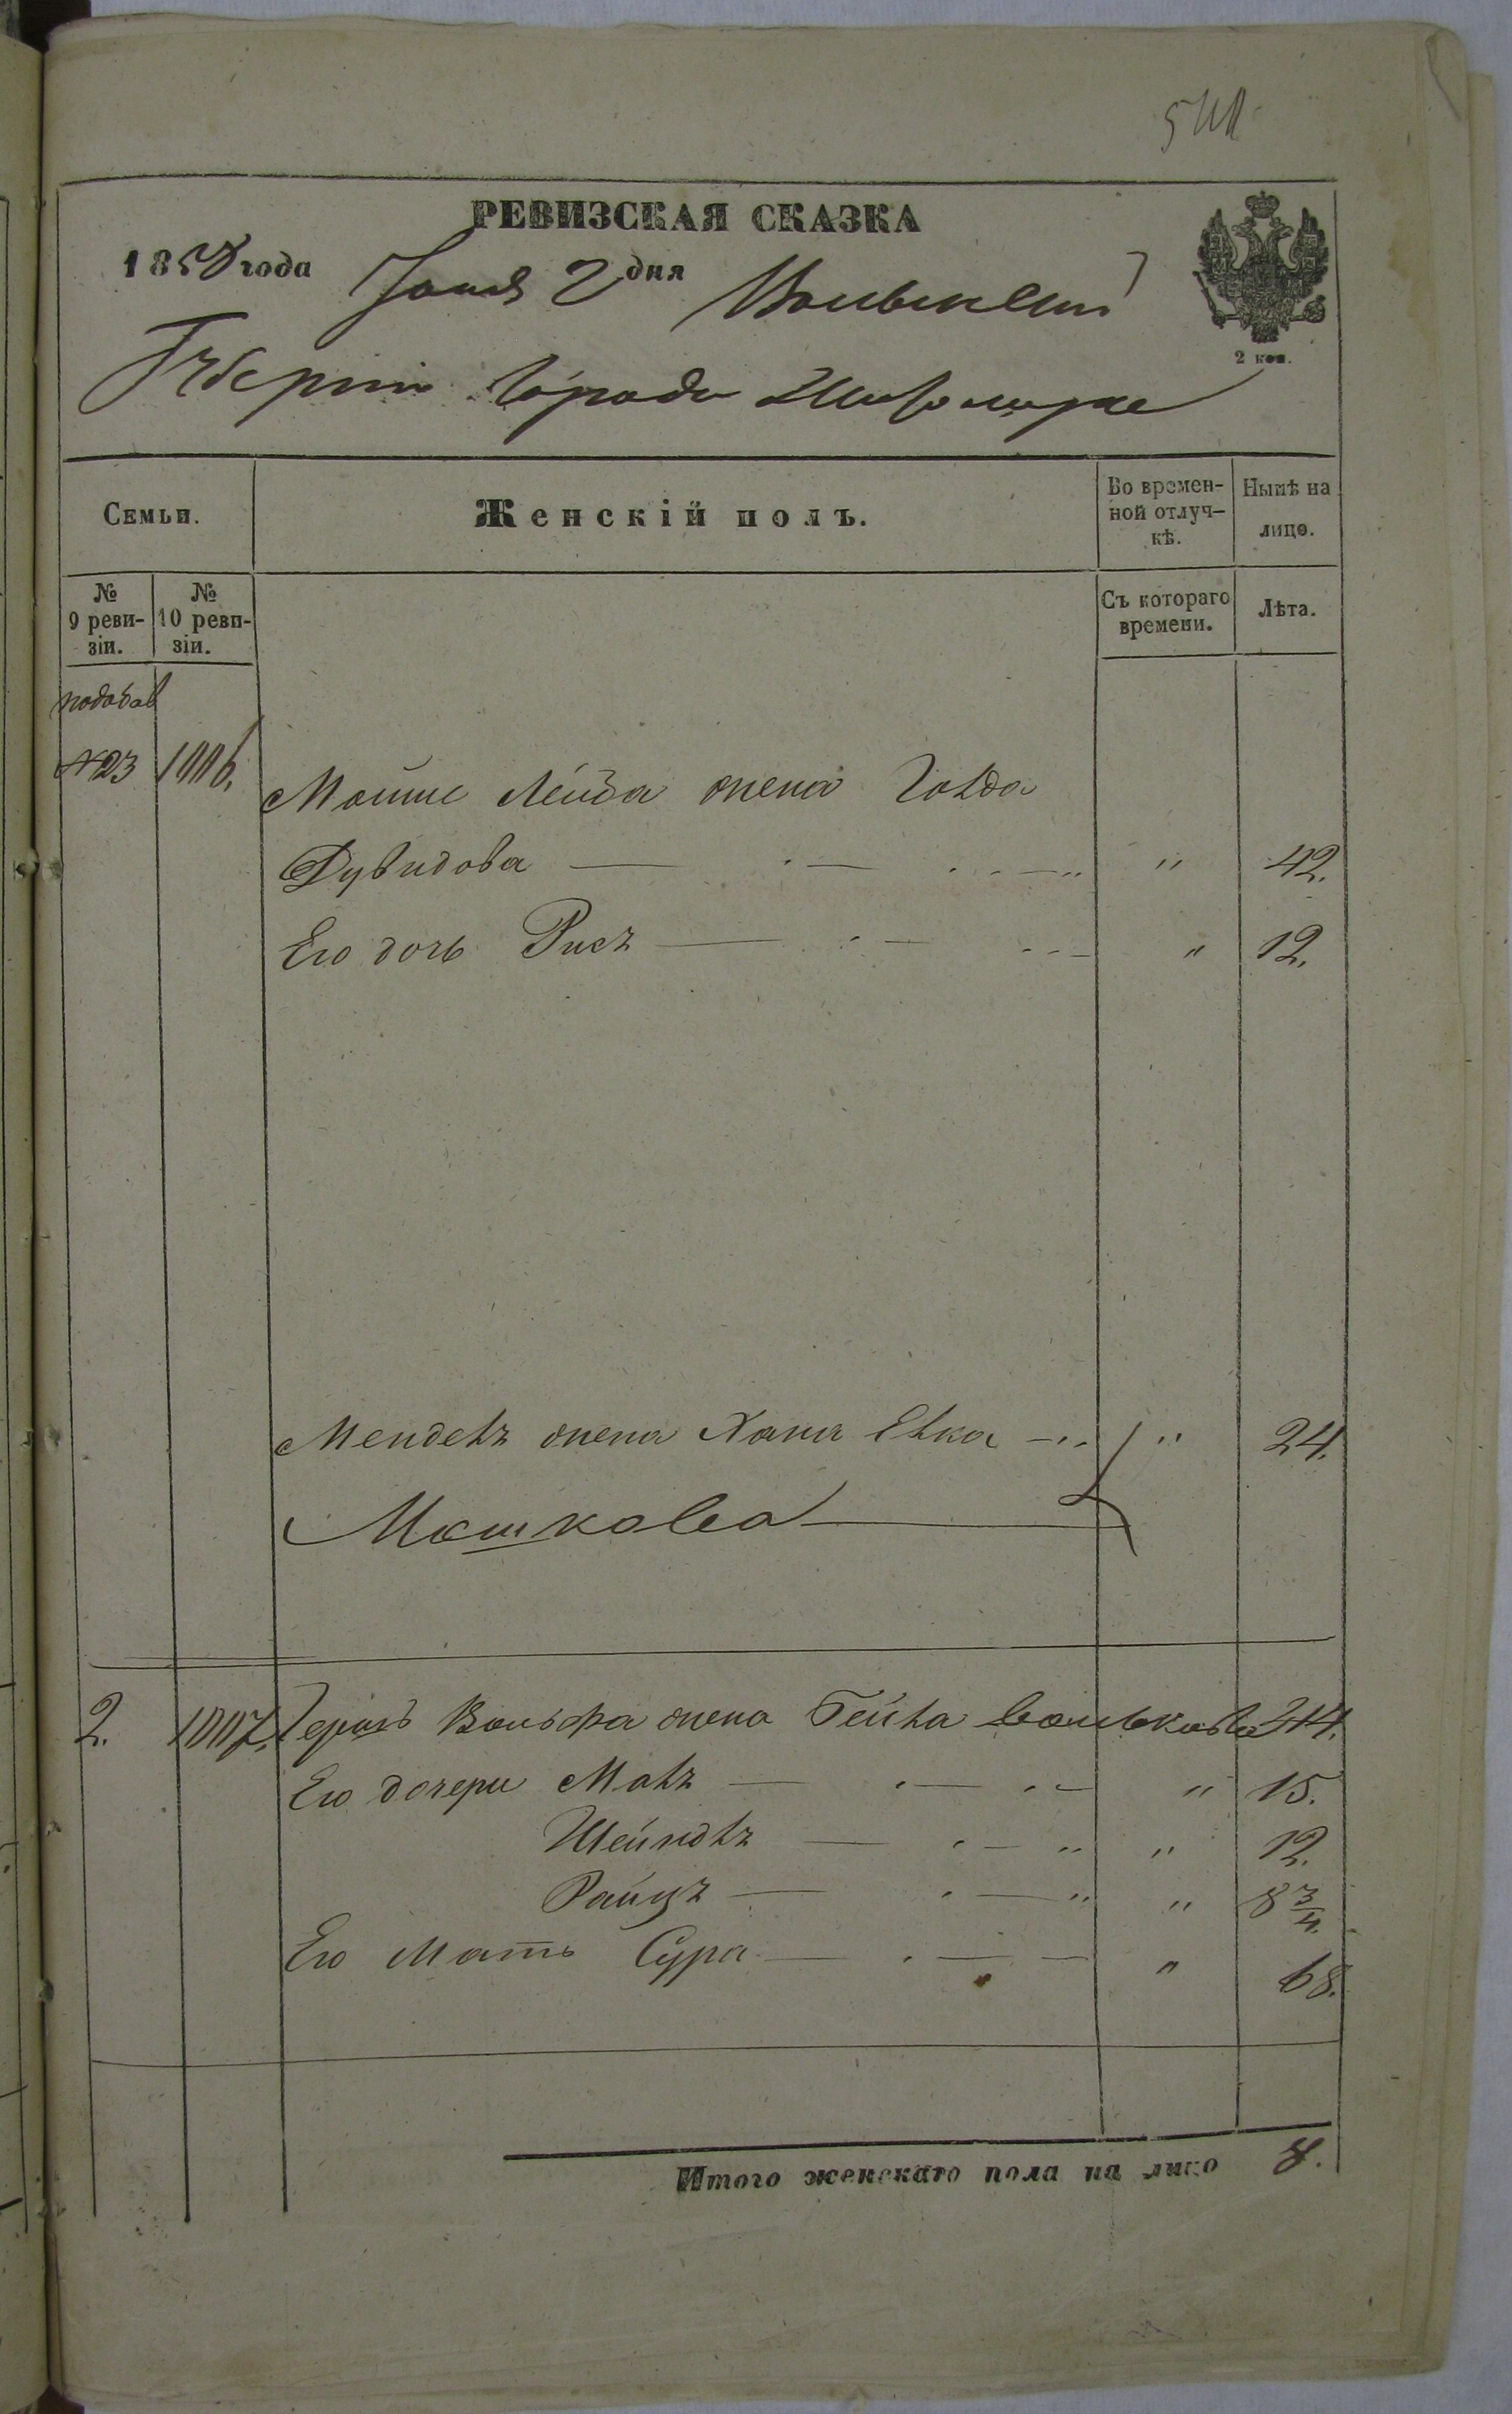 РЕВИЗСКАЯ СКАЗКА
1858 года Іюня 2 дня Волынской
Губерніи Города Житомира
2 коп.
Семьи.
Женскій полъ.
Во времен-
ной отлуч-
кѣ.
Нынѣ на
лицо.
№
9 реви-
зіи.
№
10 реви-
зіи.
Съ котораго
времени.
Лѣта.
подобав
№23
Мошке Лейба жена Голда
Дувидова — . — . . — „ „ 42.
Его дочь Рися — . — . . — „ 12.
Мендель жена Хана Елка — „ „ 24.
Мошкова
2. Вольфа жена Бейла Вольковa 44.
Его дочери Маля — . — . — „ 15.
Шейндля — . — „ „ 12.
Райця — . — „ „ 8 3/4.
Его мать Сура — . — — „ 68.
Итого женскаго пола на лицо 8.